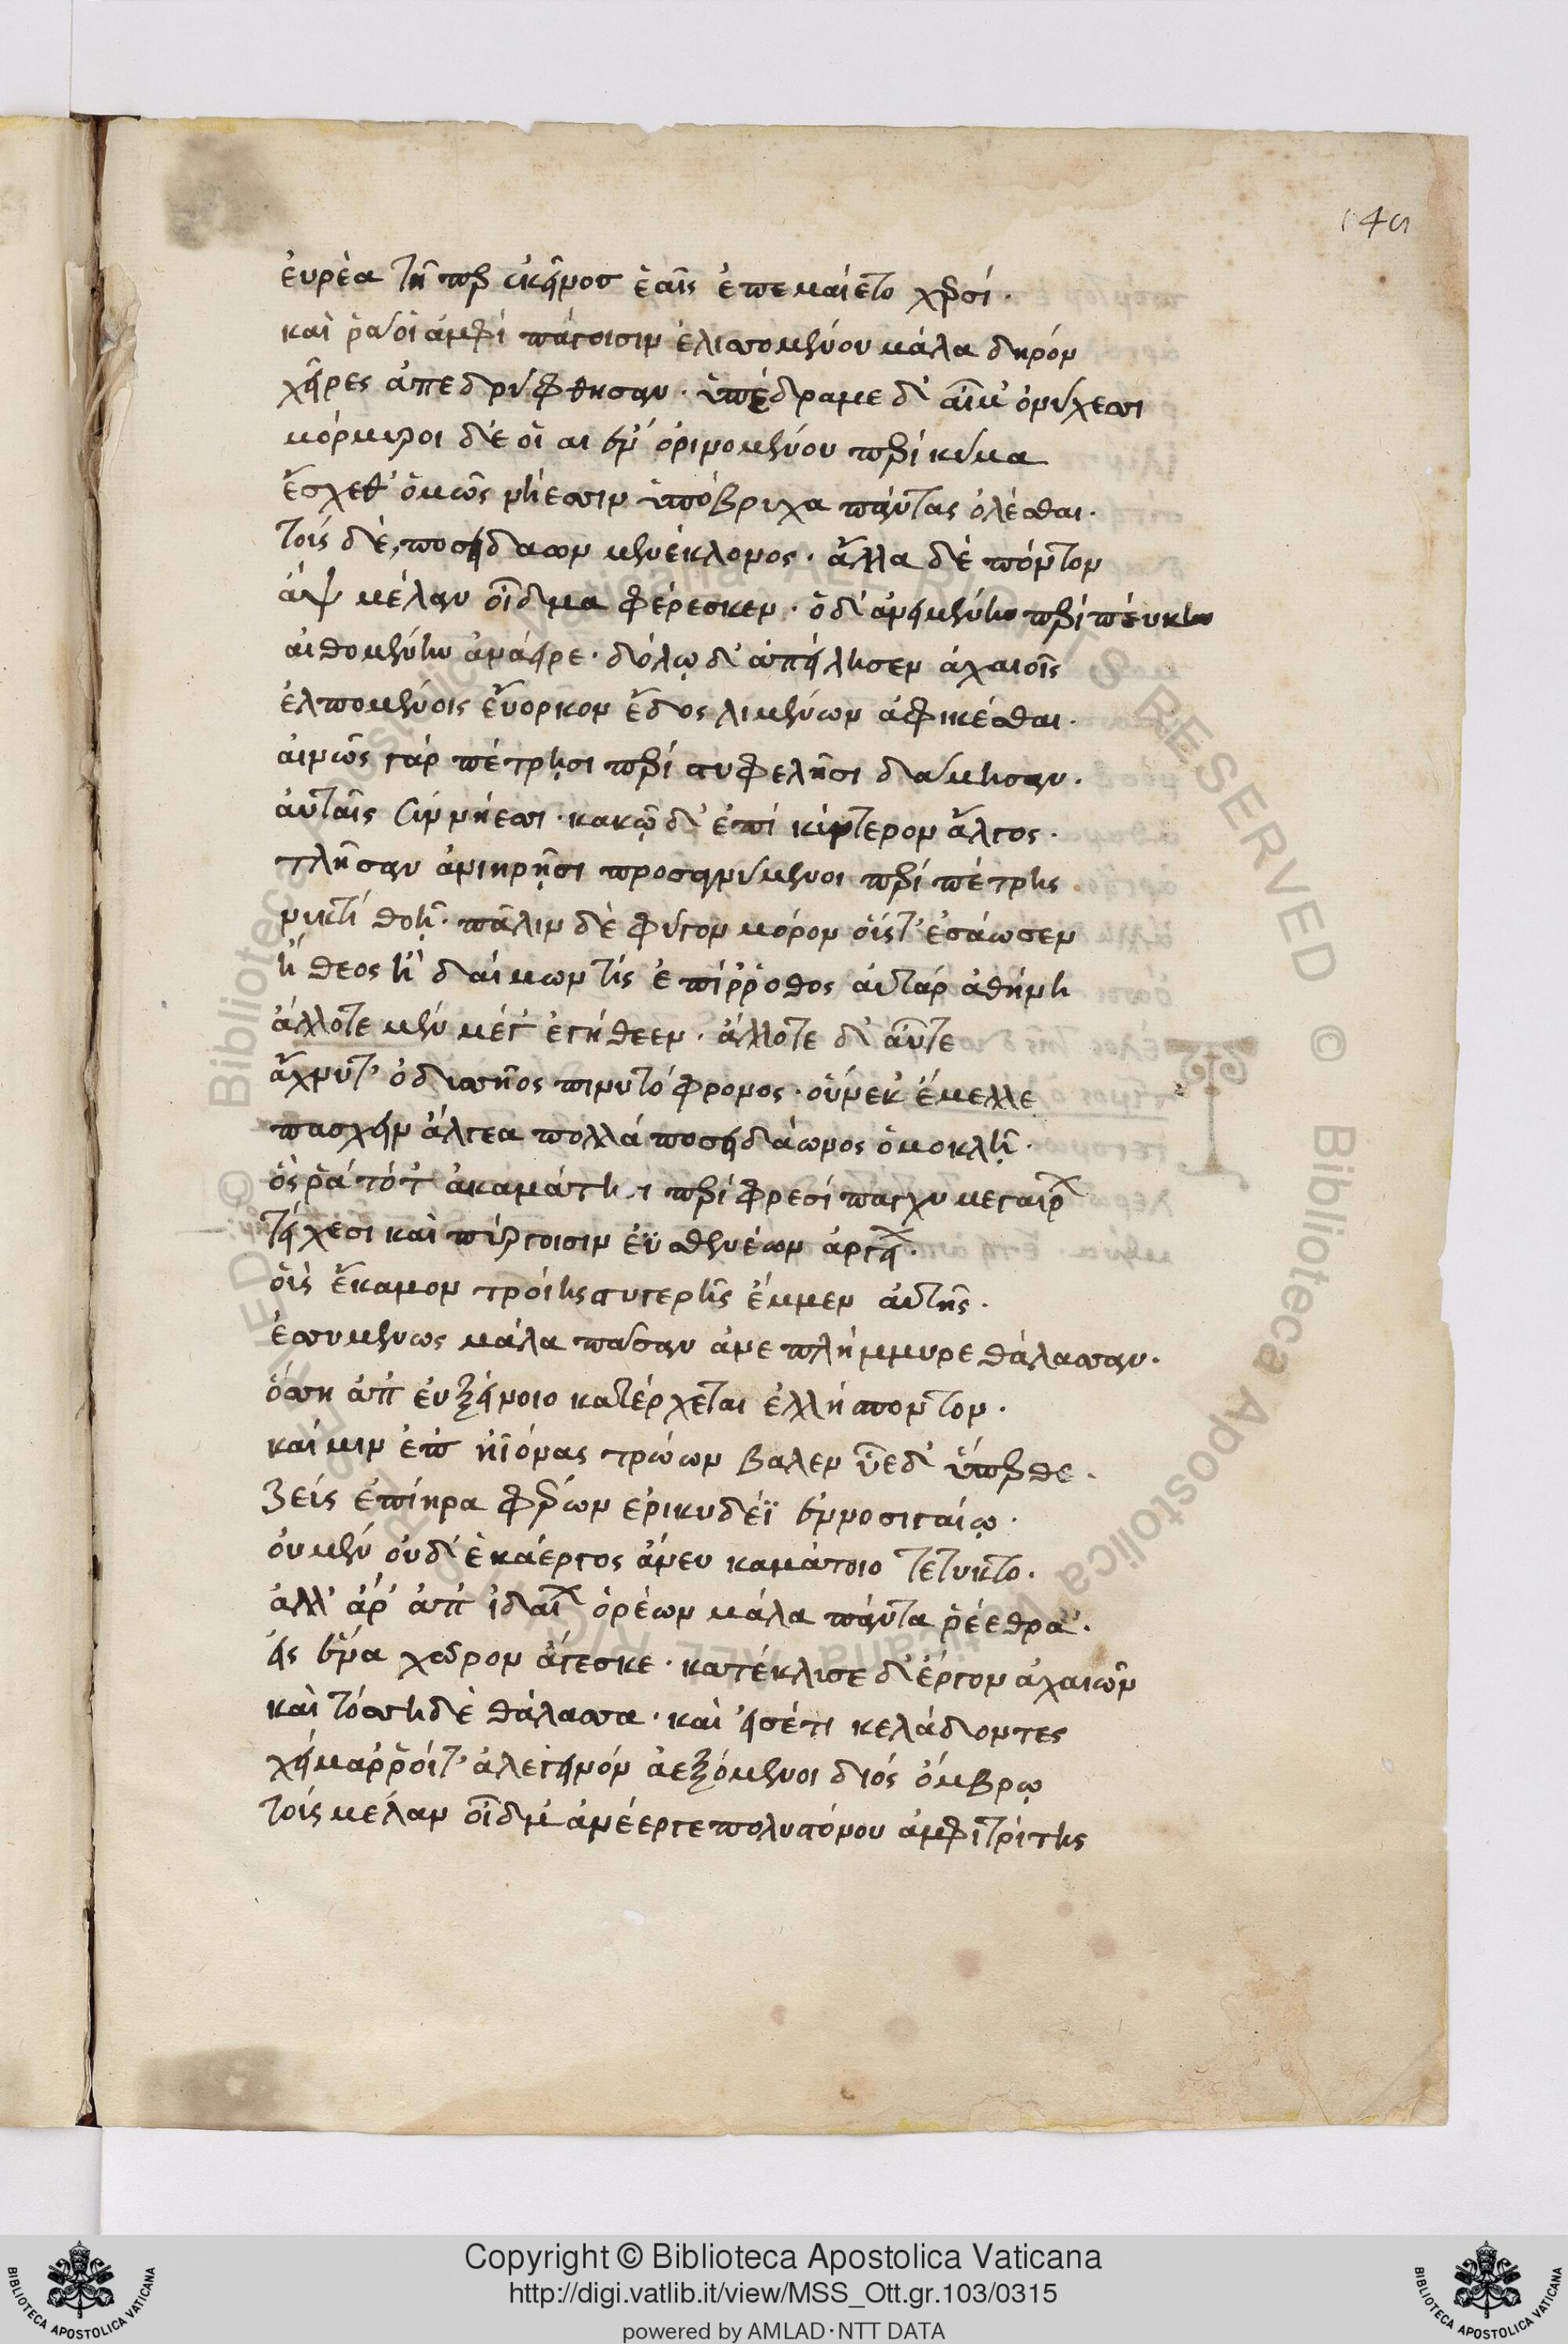 149
εὐρέα τῇ περ κεῖνος ἑαῖς ἐπεμαίετο χερσί.
καὶ ῥά οἱ ἀμφὶ πάγοισιν ἑλισσομένου μάλα δηρόν
χεῖρες ἀπεδρύφθησαν. ὑπέδραμε δ' αἷμ' ὀνύχεσσι
μόρμυροι δέ οἱ αἰὲν ὀρινομένου περὶ κῦμα
ἔσχεθ' ὁμῶς νήεσσιν ὑπόβρυχα πάντας ὀλέσθαι.
τοῖς δὲ, ποσειδάων μενέκλονος. ἄλλα δὲ πόντον
ἂψ μέλαν οἶδμα φέρεσκεν. ὁ δ' ἀνειμένην περὶ πεύκην
αἰθομένην ἀνάειρε. δόλῳ δ' ἀπείλησεν ἀχαιοῖς
ἐλπομένοις εὔορκον ἕδος λιμένων ἀφικέσθαι.
αἰνῶς γάρ πέτρῃσι περὶ στυφελῇσι δάμησαν.
αὐταῖς σύν νήεσσι. κακῷ δ' ἐπὶ κύντερον ἄλγος.
τλῆσαν ἀνιηρῇσι προσαινύμενοι περὶ πέτρης
νυκτί θοῇ. πάλιν δὲ φύγον μόρον οἷς τ' ἐσάωσεν
ἢ θεος ἢ δαίμων τίς ἐπίρροθος αὐτάρ ἀθήνη
ἄλλοτε μὲν μέγ' ἐγήθεεν. ἄλλοτε δ' αὖτε
ἄχνυτ' ὀδυσσῆος πινυτόφρονος. οὕνεκ' ἔμελλε
πασχειν ἄλγεα πολλά ποσειδάωνος ὁμοκλῇ.
ὅς ῥά τότ' ἀκαμάτῃσι περὶ φρεσί παγχυ μεγαιρ
τείχεσι καὶ πύργοισιν ἐϋσθενέων ἀργεί.
οἷς ἔκαμον τροίης στυγερῆς ἔμμεν ἀϋτῆς.
ἐσσυμένως μάλα πᾶσαν ἀνεπλήμμυρε θάλασσαν.
ὅσση ἀπ' εὐξείνοιο κατέρχεται ἑλλήσποντον.
καί μιν ἐπ' ἠϊόνας τρώων βαλεν ὗε δ' ὕπερθε.
ζεύς ἐπίηρα φέρων ἐρικυδέϊ ἐννοσιγαίῳ.
οὐ μὲν οὐδ' ἑκάεργος ἄνευ καμάτοιο τέτυκτο.
ἀλλ' ἄρ' ἀπ' ἰδαίων ὀρέων μάλα πάντα ῥέεθρα.
εἰς ἕνα χῶρον ἄγεσκε. κατέκλυσε δ' ἔργον ἀχαιῶν
καὶ τόσση δὲ θάλασσα. καὶ εἰσέτι κελάδοντες
χείμαρροί τ' ἀλεγεινόν ἀεξόμενοι διός ὄμβρῳ
τοὺς μέλαν οἶδμ' ἀνέεργε πολυστόνου ἀμφιτρίτης
Copyright © Biblioteca Apostolica Vaticana
http://digi.vatlib.it/view/MSS_Ott.gr.103/0315
powered by AMLAD·NTT DATA